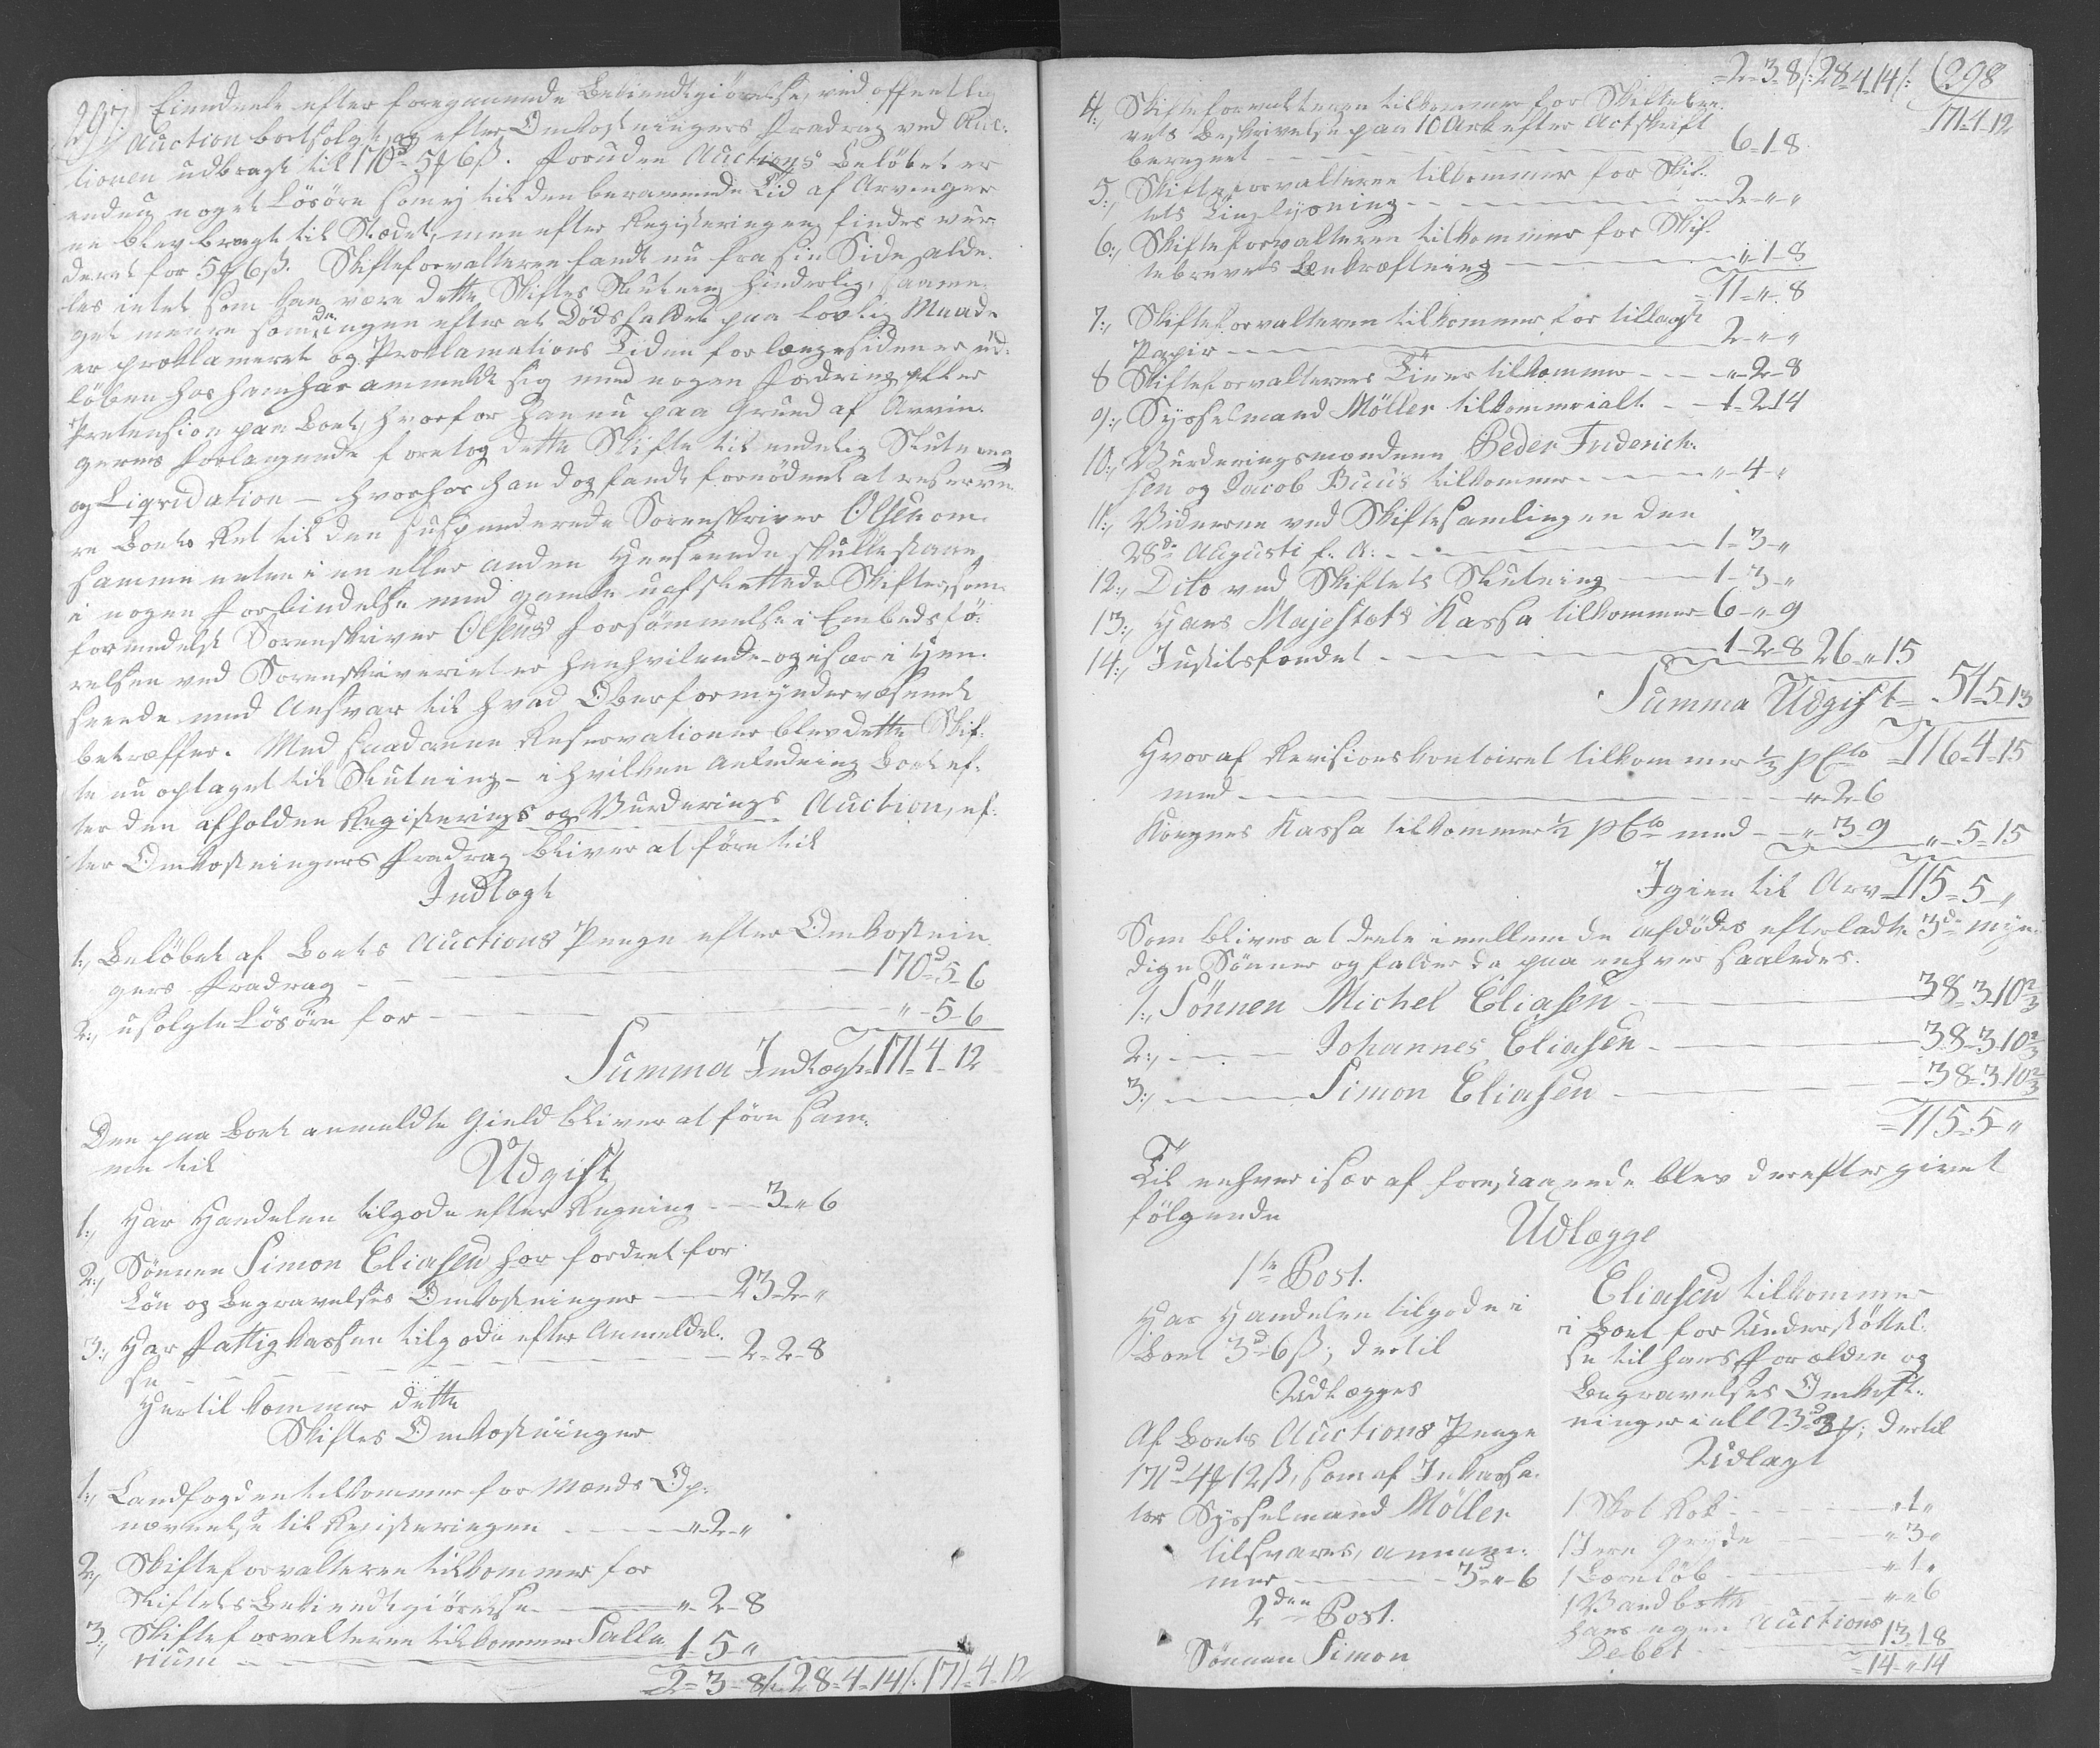 297. Eiendeele efter foregaaende Bekiendtgiørelse, ved offentlig
Auction bortsolgt, og efter Omkostningers Fradrag ved Auc-
tionen udbragt til 170d 5ƒ 6ß. Foruden Auctions Beløbet er
endnu noget Løsøre som ej til den berammede Tid af Arvinger
ne blev bragt til Stædet, men efter Registeringen findes vur-
deret for 5ƒ 6ß. Skifteforvalteren fandt nu fra sin Side alde-
les intet som kan være dette Skiftes Slutning hinderlig, saame-
get meere som da ingen efter at Dødsfaldet paa lovlig Maade
er proklameret og Proklamations Tiden for længesiden er ud-
løben hos ham har anmeldt sig med nogen Fordring eller
Pretension paa Boet, hvorfor han nu paa Grund af Arvin-
gernes Forlangende foretog dette Skifte til endelig Slutning
og Liqvidation — hvorhos han dog fandt fornødent at reserve-
re Boets Ret til den suspenderede Sorenskriver Olsen om
samme enten i en eller anden Henseende skulle staae
i nogen Forbindelse med gamle uafsluttede Skifter, som
formedelst Sorenskriver Olsens Forsømmelse i Embedsfø-
relsen ved Sorenskriveriet er henhvilende - og især i Hen-
seende med Ansvar til hvad Oberformynderværsenet
betræffer. Med saadanne Reservationer blev dette Skif-
te nu optaget til Slutning - i hvilken Anledning Boet ef-
ter den afholdne Registerings og Vurderings Auction, ef-
ter Omkostningers Fradrag bliver at føre til
Indtægt
1., Beløbet af Boets Auctions Penge efter Omkostnin
gers Fradrag - - 170d 5 6
2., usolgte Løsøre for - - " - 5 - 6
Summa Indtægt = 171 - 4 - 12
Den paa Boet anmeldte Gield bliver at føre sam-
me til
Udgift
1., Har Handelen tilgode efter Regning - 3 - " 6
2., Sønnen Simon Eliasen har fordret for
Løn og Begravelses Omkostninger - 23 - 2 - "
3., Har Fattigkassen tilgode efter Anmeldel-
se - - 2 - 2 - 8
Hertil kommer dette
Skiftes Omkostninger
1., Landfogden tilkommer for Mænds Op-
nævnelse til Registeringen - - " - 2 - "
2., Skifteforvalteren tilkommer for
Skiftets Bekiendtgiørelse - " - 2 - 8
3., Skifteforvalteren tilkommer Salla
rium - - 1 - 5 - "
2 - 3 - 8 /: 28 - 4 - 14 /: 171 - 4 - 12
= 2 - 3 - 8 /: 28 - 4 - 14 /: (298
171 - 4 - 12
4., Skifteforvalteren tilkommer for Skiftebre-
vets Beskrivelse paa 10 Ark efter Actskrift
beregnet - - 6 - 1 - 8
5., Skifteforvalteren tilkommer for Skif-
tets Tinglysning - - 2 - " - "
6., Skifteforvalteren tilkommer for Skif-
tebrevets Bekræftning - " - 1 - 8
= 11 - " - 8
7., Skifteforvalteren tilkommer for tillagt
Papir - - 2 - " - "
8 Skifteforvalterens Tiener tilkommer - - " - 2 - 8
9., Sysselmand Møller tilkommer ialt - - 1 - 2 - 14
10., Vurderingsmændene Peder Friderich-
sen og Jacob Buus tilkommer - - " - 4 - "
11., Vidnerne ved Skiftesamlingen den
28de Augusti f. A. - - 1 - 3 - "
12., Dito ved Skiftets Slutning - 1 - 3 - "
13., Hans Majestæts Kassa tilkommer - 6 - " 9
14., Justitsfondet - - 1 - 2 - 8 26 - " 15
Summa Udgift = 54 - 5 - 13
Hvoraf Revisionskontoiret tilkommer 1/3 pCto = 116 - 4 - 15
med - - " - 2 - 6
Kongens Kassa tilkommer 1/2 pCto med - - " 3 - 9 " - 5 - 15
Igien til Arv = 115 - 5 - "
Som bliver at deele imellem de afdødes efterladte 3de myn-
dige Sønner og falder da paa enhver saaledes.
1., Sønnen Michel Eliasen - 38 - 3 - 10 2/3
2., - - Johannes Eliasen - 38 - 3 - 10 2/3
3., - - Simon Eliasen - 38 - 3 - 10 2/3
= 115 - 5 - "
Til enhver især af forestaaende blev derefter givet
følgende
Udlægge
1te Post.
Har Handelen tilgode i
Boet 3d " 6ß; dertil
Udlægges
Af Boets Auctions Penge
171d 4ƒ 12ß, som af Inkassa-
tor Sysselmand Møller
tilsvares, annam-
mer - - 3d " - 6
2den Post.
Sønnen Simon
Eliasen tilkommer
i Boet for Understøttel-
se til hans Forældre og
Begravelses Omkost-
ninger i alt 23d 2ƒ; dertil
Udlagt
1 - - " 1 "
1 Jern Gryde - " 3 "
1 - - " 1 "
1 Vandbøtte - " " 6
hans egen Auctions
Debet - 13 - 1 - 8
= 14 - " 14